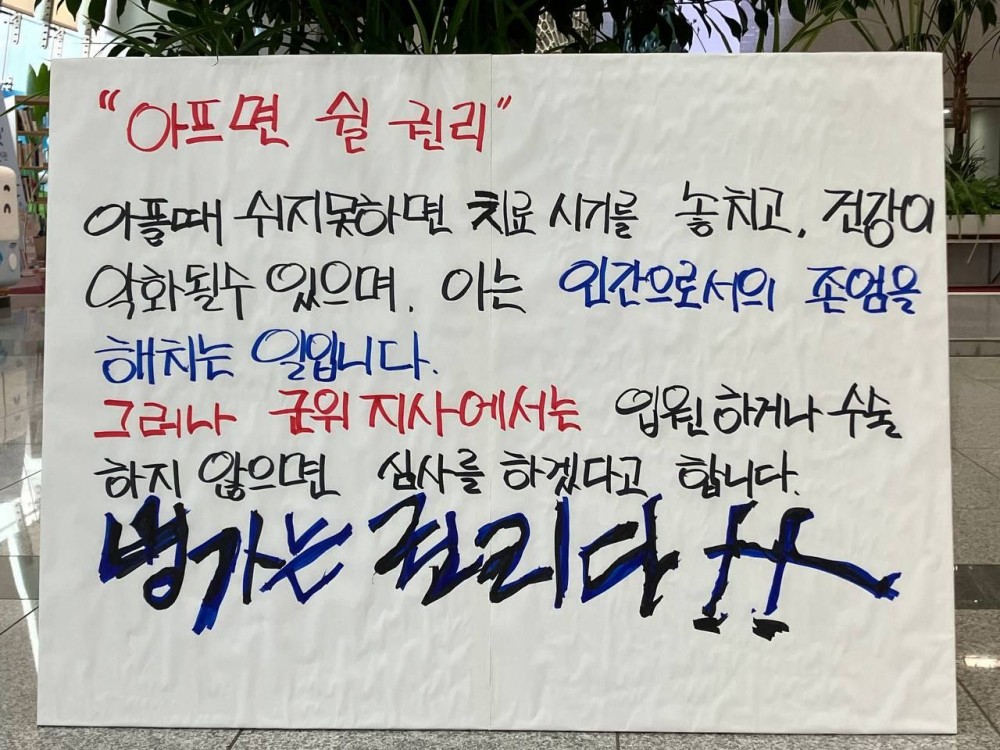 "아프면 쉴 권리"
아플때 쉬지못하면 치료 시기를 놓치고, 건강이
악화될수 있으며, 이는 인간으로서의 존엄을
해치는 일입니다.
그러나 군위지사에서는 입원하거나 수술
하지 않으면 심사를 하겠다고 합니다.
병가는 권리다!!